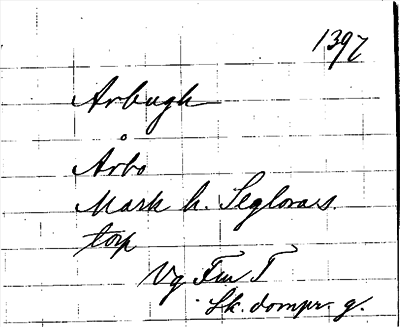 1397
Arbugh
Årbo
Mark h. Seglora s.
torp
Vg Fru T
Sk. dompr. g.